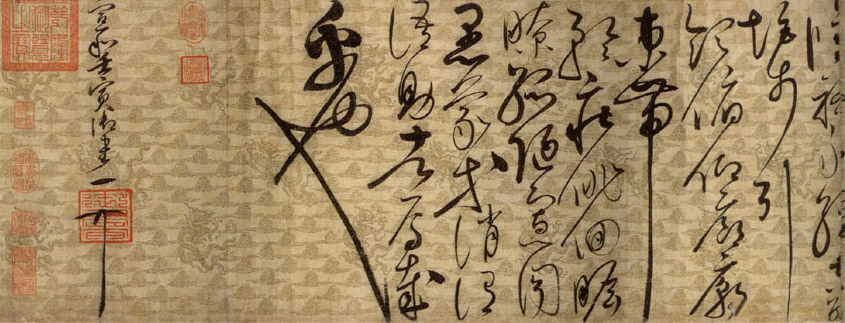 矩步引
領俯仰廊廟
束帶
矜莊徘徊瞻
眺孤陋寡聞
愚蒙等誚謂
語助者焉哉
乎也
宣和壬寅御書